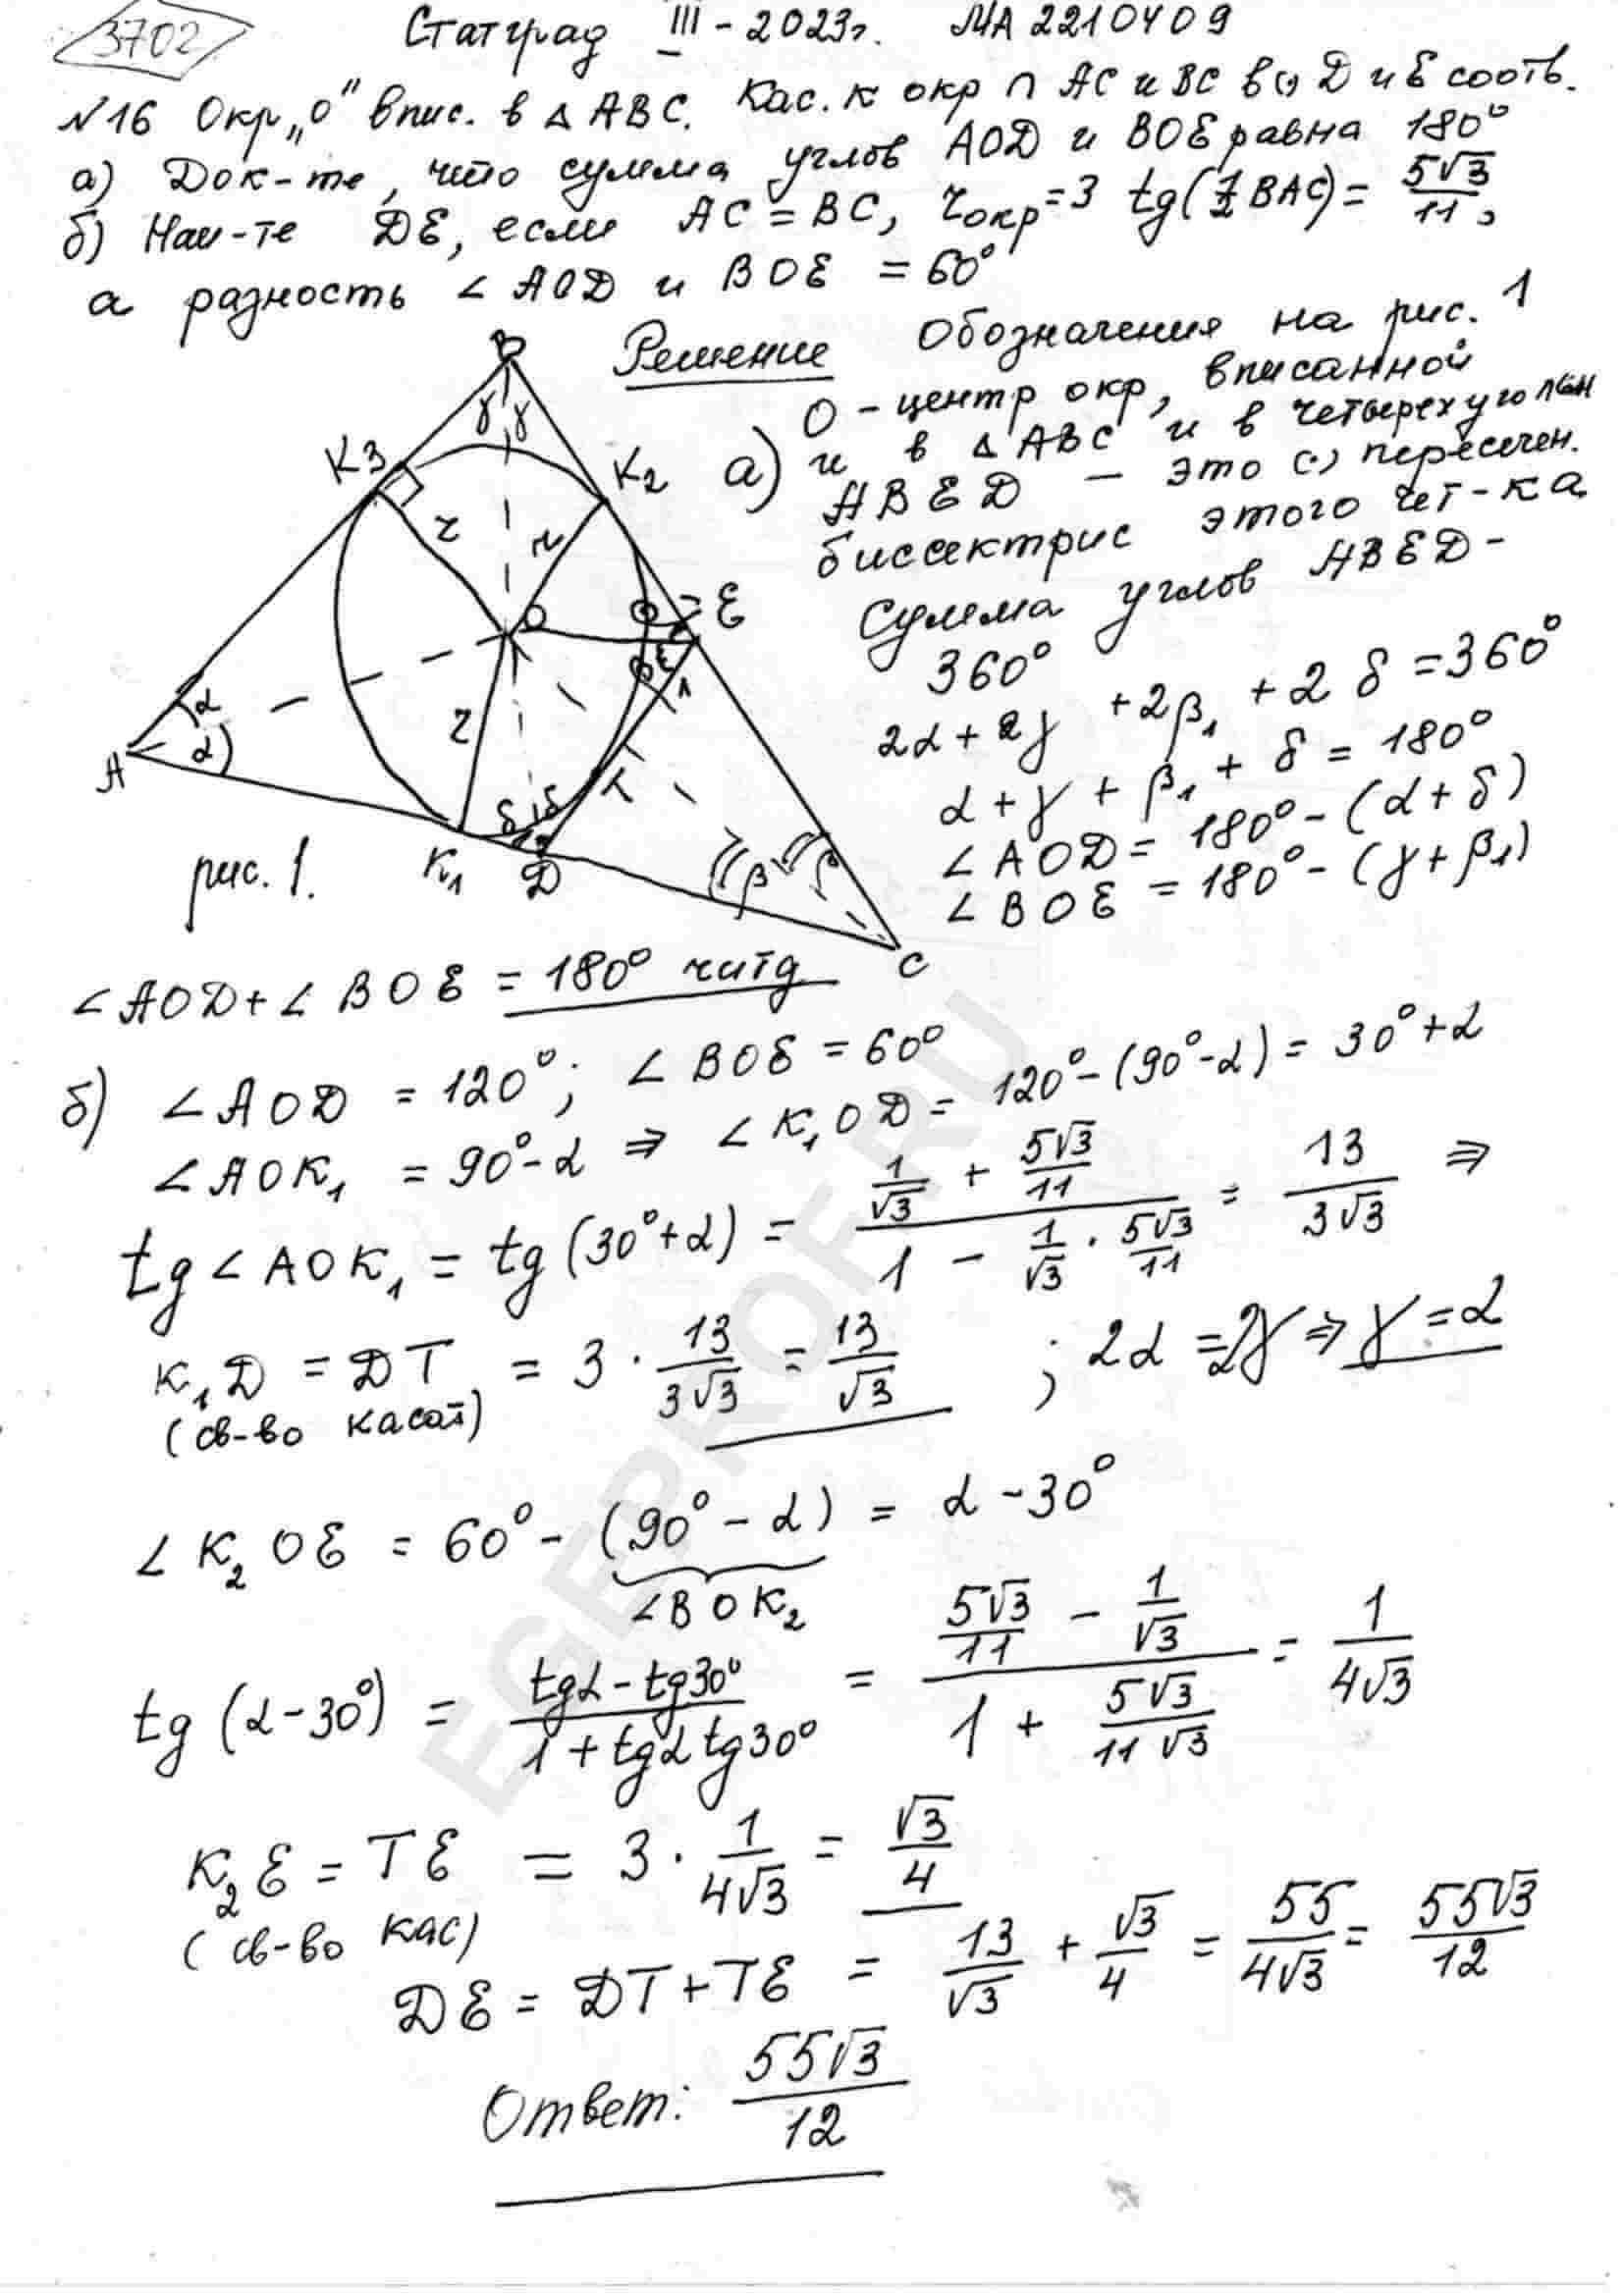 3702
Статград III - 2023г. МА 2210409
№16 Окр „О" впис. в △ ABC. Кас. к окр ∩ AC и BC в (·) D и E соотв.
а) Док-те, что сумма углов AOD и BOE равна 180°
б) Наи-те DE, если AC = BC, r окр = 3 tg(1/2 BAC) = 5√3/11,
а разность ∠ AOD и BOE = 60°
Решение Обозначения на рис. 1
а) O - центр окр, вписанной
и в △ ABC и в четырехугольн
ABED - это (·) пересечен.
биссектрис этого чет-ка
Сумма углов ABED -
360°
2α + 2γ + 2β₁ + 2δ = 360°
α + γ + β₁ + δ = 180°
∠ AOD = 180° - (α + δ)
∠ BOE = 180° - (γ + β₁)
B
γ γ
K3
K2
r
r
O
E
β₁
β₁
α
α
A
r
δ δ
T
K₁
D
β
β
C
рис. 1.
∠AOD + ∠ BOE = 180° читд
б) ∠ AOD = 120°; ∠ BOE = 60°
∠ AOK₁ = 90° - α ⇒ ∠ K₁OD = 120° - (90° - α) = 30° + α
tg ∠ AOK₁ = tg (30° + α) = (1/√3 + 5√3/11)/(1 - 1/√3 · 5√3/11) = 13/3√3 ⇒
K₁D = DT = 3 · 13/3√3 = 13/√3 ; 2α = 2γ ⇒ γ = α
(св-во касат)
∠ K₂OE = 60° - (90° - α) = α - 30°
∠BOK₂
tg (α - 30°) = (tgα - tg30°)/(1 + tgα tg30°) = (5√3/11 - 1/√3)/(1 + 5√3/11√3) = 1/4√3
K₂E = TE = 3 · 1/4√3 = √3/4
(св-во кас)
DE = DT + TE = 13/√3 + √3/4 = 55/4√3 = 55√3/12
Ответ: 55√3/12
EGEPROF.RU